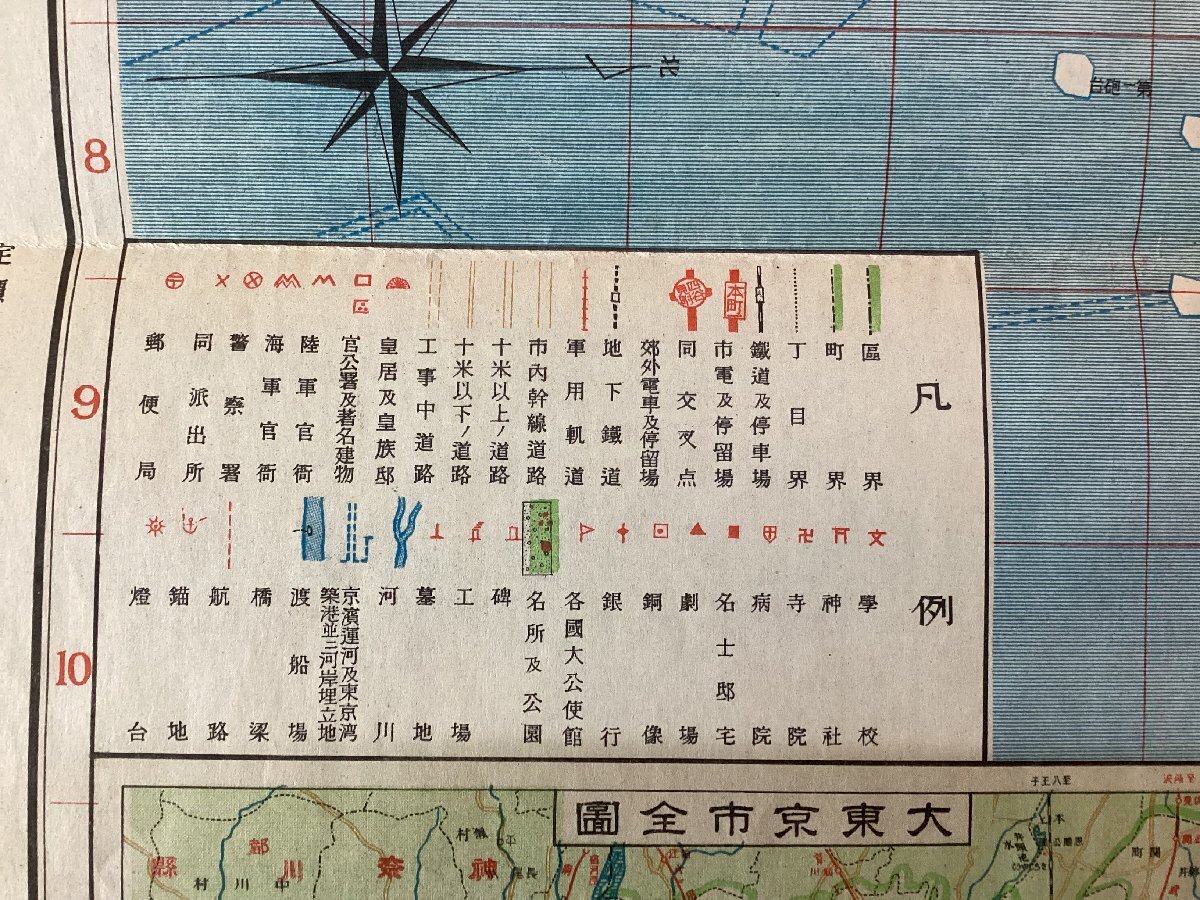 北
第一砲台
8
9
10
凡例
區界
町界
丁目界
鐵道及停車場
市電及停留場
本町
同交叉点
郊外電車及停留場
地下鐵道
軍用軌道
市內幹線道路
十米以上ノ道路
十米以下ノ道路
工事中道路
皇居及皇族邸
官公署及著名建物
區
陸軍官衙
海軍官衙
警察署
同派出所
郵便局
學校
文
神社
寺院
卍
病院
名士邸宅
劇場
銅像
銀行
各國大公使館
名所及公園
碑
工場
墓地
河川
京濱運河及東京湾
築港並ニ河岸埋立地
渡船場
橋梁
航路
錨地
燈台
大東京市全圖
至八王子
神奈川縣
中川村
町関